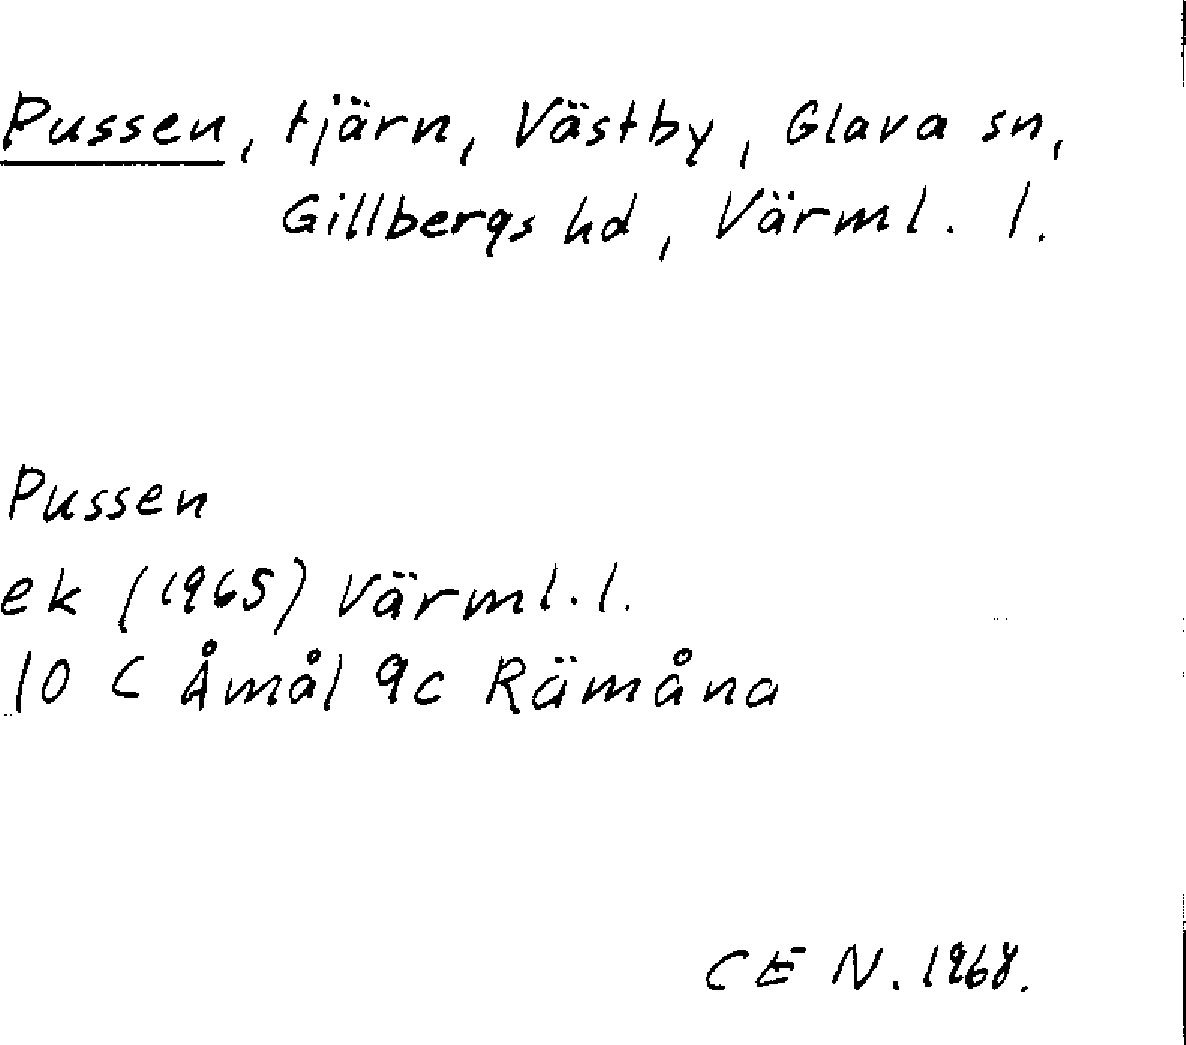 Pussen, tjärn, Västby, Glava sn,
Gillbergs hd, Värml. l.
Pussen
ek (1965) Värml. l.
10 C Åmål 9c Rämåna
CE N. 1968.